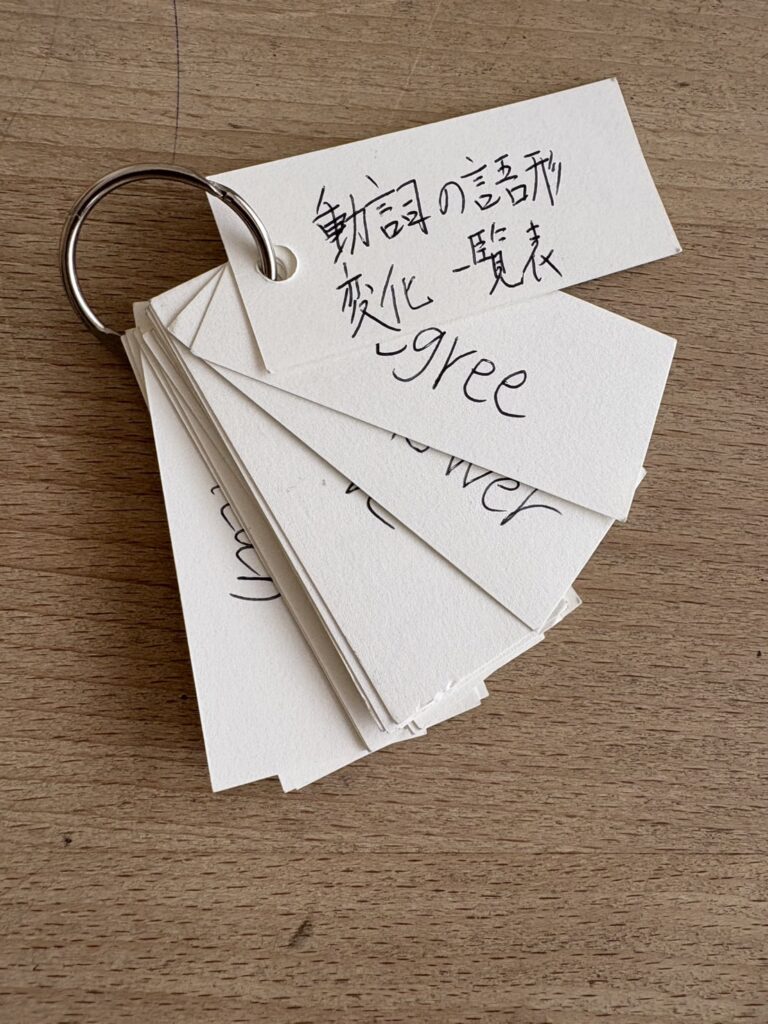 動詞の語形
変化一覧表
gree
ower